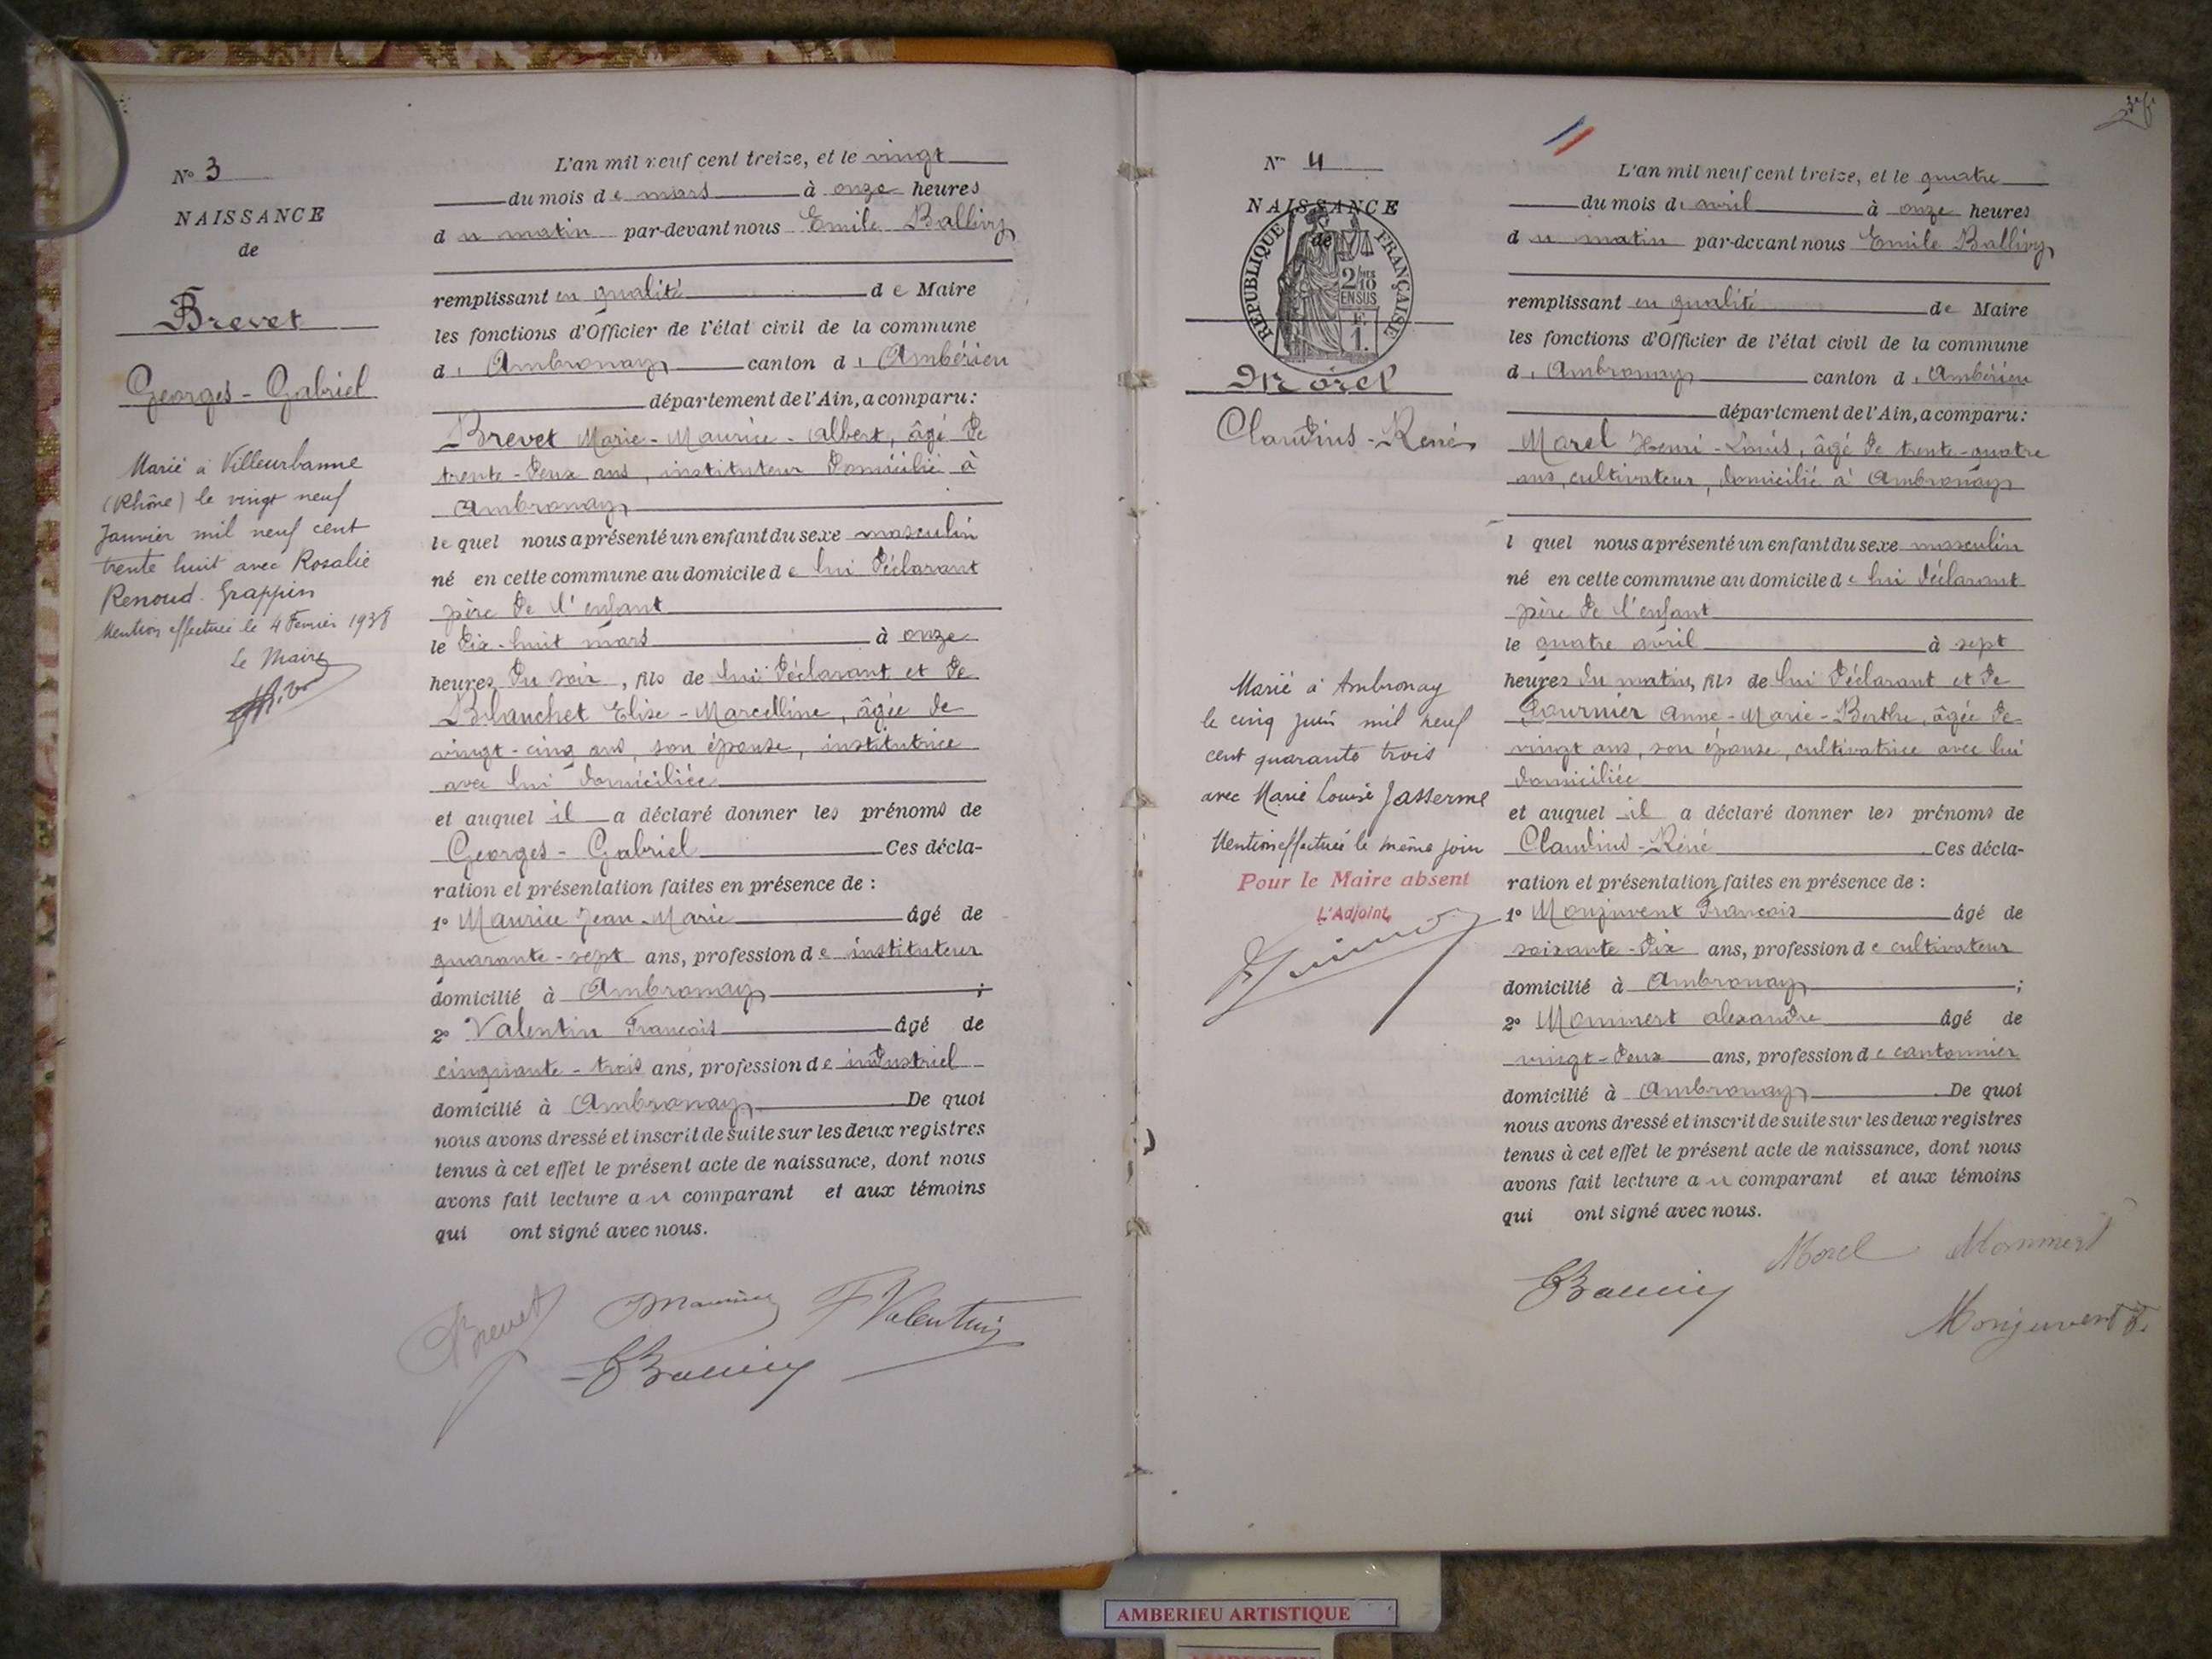 N° 3
NAISSANCE
de
Brevet
Georges-Gabriel
Marié à Villeurbanne
(Rhône) le vingt neuf
Janvier mil neuf cent
trente huit avec Rosalie
Renoud-Grappin
Mention effectuée le 4 Février 1938
Le Maire
L'an mil neuf cent treize, et le vingt
du mois de mars à onze heures
du matin par-devant nous Emile Ballivy
remplissant en qualité de Maire
les fonctions d'Officier de l'état civil de la commune
d' Ambronay canton d' Ambérieu
département de l'Ain, a comparu :
Brevet Marie-Maurice-Albert, âgé de
trente-deux ans, instituteur domicilié à
Ambronay
lequel nous a présenté un enfant du sexe masculin
né en cette commune au domicile de lui déclarant
père de l'enfant
le dix-huit mars à onze
heures du soir, fils de lui déclarant et de
Blanchet Elise-Marcelline, âgée de
vingt-cinq ans, son épouse, institutrice
avec lui domiciliée
et auquel il a déclaré donner les prénoms de
Georges-Gabriel Ces décla-
ration et présentation faites en présence de :
1° Maurice Jean-Marie âgé de
quarante-sept ans, profession de instituteur
domicilié à Ambronay ;
2° Valentin François âgé de
cinquante-trois ans, profession de industriel
domicilié à Ambronay De quoi
nous avons dressé et inscrit de suite sur les deux registres
tenus à cet effet le présent acte de naissance, dont nous
avons fait lecture au comparant et aux témoins
qui ont signé avec nous.
Brevet Maurice F Valentin
EBallivy
N° 4
NAISSANCE
de
REPUBLIQUE FRANÇAISE
2/10
EN SUS
F.
1.
Morel
Claudius-René
Marié à Ambronay
le cinq juin mil neuf
cent quarante trois
avec Marie Louise Jasserme
Mention effectuée le même jour
Pour le Maire absent
L'Adjoint,
L'an mil neuf cent treize, et le quatre
du mois d' avril à onze heures
du matin par-devant nous Emile Ballivy
remplissant en qualité de Maire
les fonctions d'Officier de l'état civil de la commune
d' Ambronay canton d' Ambérieu
département de l'Ain, a comparu :
Morel Henri-Louis, âgé de trente-quatre
ans, cultivateur, domicilié à Ambronay
l quel nous a présenté un enfant du sexe masculin
né en cette commune au domicile de lui déclarant
père de l'enfant
le quatre avril à sept
heures du matin, fils de lui déclarant et de
Fournier Anne-Marie-Berthe, âgée de
vingt ans, son épouse, cultivatrice avec lui
domiciliée
et auquel il a déclaré donner les prénoms de
Claudius-René Ces décla-
ration et présentation faites en présence de :
1° Monjuvent François âgé de
soixante-dix ans, profession de cultivateur
domicilié à Ambronay ;
2° Mommert Alexandre âgé de
vingt-deux ans, profession de cantonnier
domicilié à Ambronay De quoi
nous avons dressé et inscrit de suite sur les deux registres
tenus à cet effet le présent acte de naissance, dont nous
avons fait lecture au comparant et aux témoins
qui ont signé avec nous.
Morel Mommert
EBallivy
Monjuvent F.
AMBERIEU ARTISTIQUE